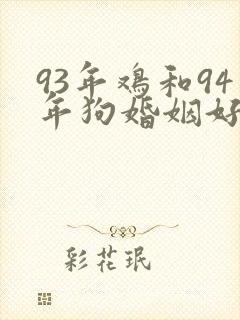 93年鸡和94
年狗婚姻好
彩花珉